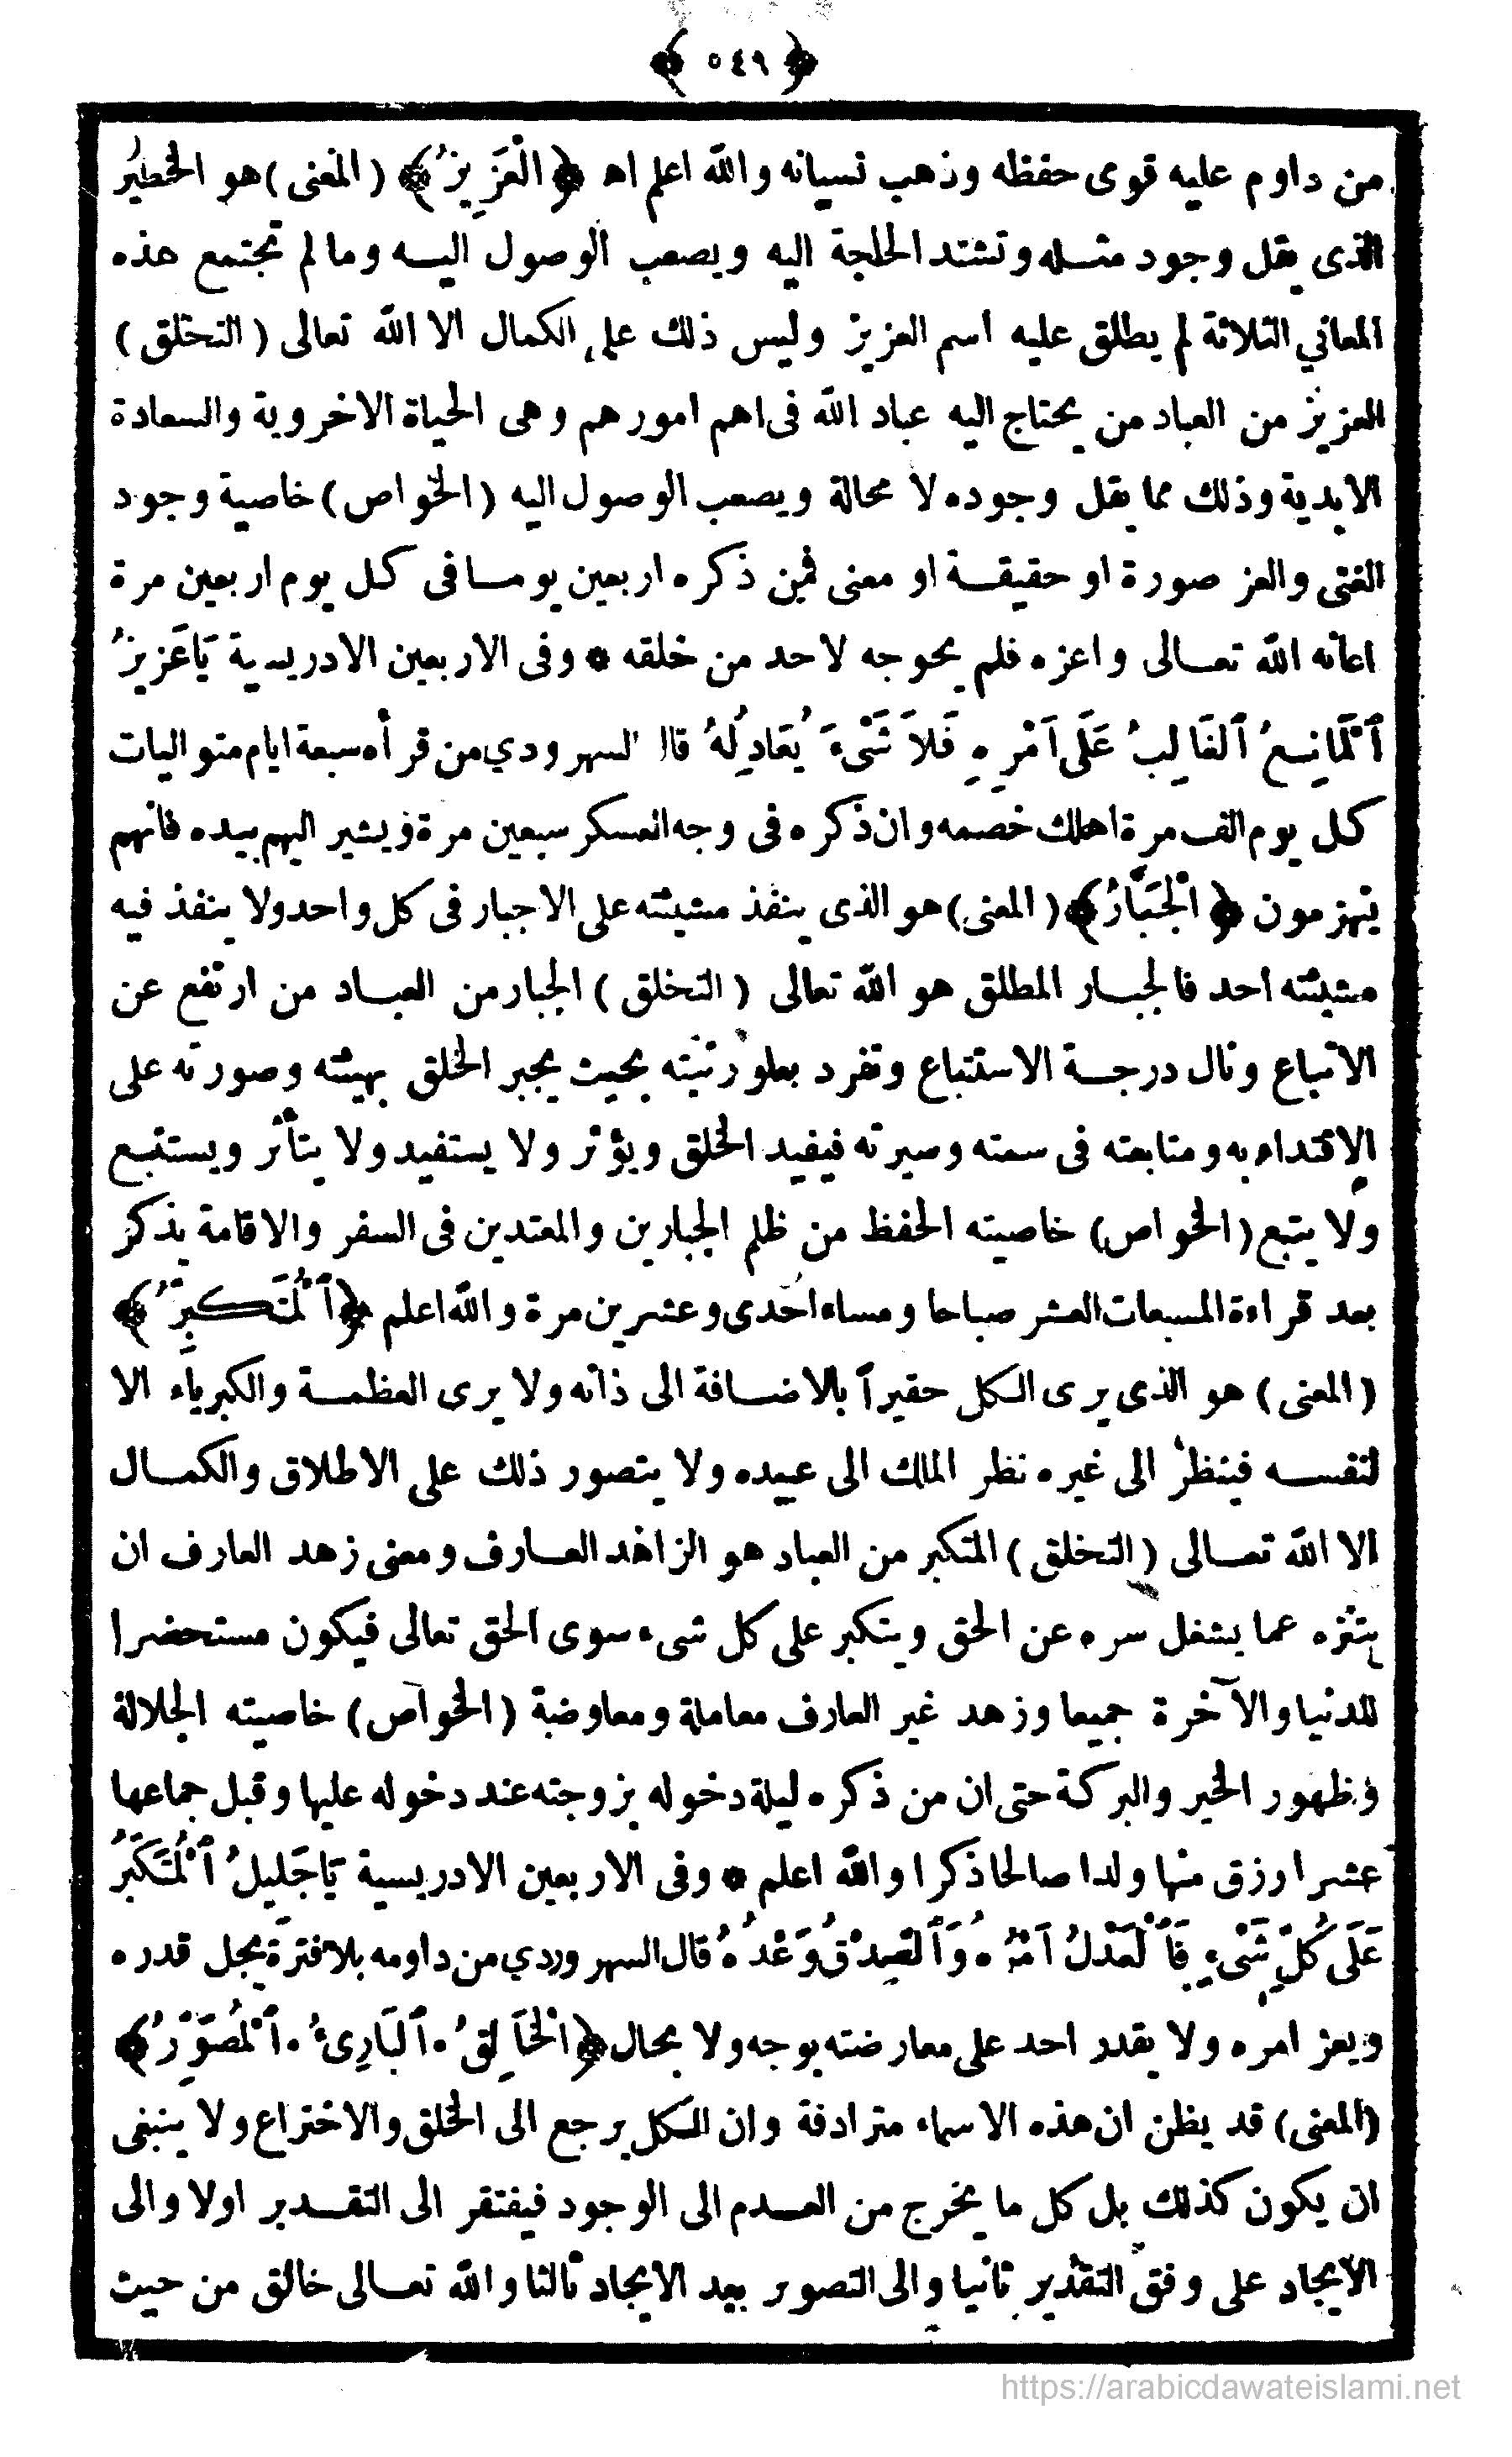 ﴿ ٥٤٩ ﴾
من داوم عليه قوى حفظه وذهب نسيانه والله اعلم اه ﴿ الْعَزِيزُ ﴾ (المعنى) هو الخطير
الذى يقل وجود مثله وتشتد الحاجة اليه ويصعب الوصول اليه وما لم تجتمع هذه
المعاني الثلاثة لم يطلق عليه اسم العزيز وليس ذلك على الكمال الا الله تعالى (التخلق)
العزيز من العباد من يحتاج اليه عباد الله فى اهم امورهم وهى الحياة الاخروية والسعادة
الابدية وذلك مما يقل وجوده لا محالة ويصعب الوصول اليه (الخواص) خاصية وجود
الغنى والعز صورة او حقيقة او معنى فمن ذكره اربعين يوما فى كل يوم اربعين مرة
اعانه الله تعالى واعزه فلم يحوجه لاحد من خلقه * وفى الاربعين الادريسية يَا عَزِيزُ
ٱلْمَانِعُ ٱلْغَالِبُ عَلَى اَمْرِهِ فَلَا شَىْءَ يُعَادِلُهُ قال السهرودي من قرأه سبعة ايام متواليات
كل يوم الف مرة اهلك خصمه وان ذكره فى وجه العسكر سبعين مرة ويشير اليهم بيده فانهم
ينهزمون ﴿ الْجَبَّارُ ﴾ (المعنى) هو الذى ينفذ مشيئته على الاجبار فى كل واحد ولا ينفذ فيه
مشيئته احد فالجبار المطلق هو الله تعالى (التخلق) الجبار من العباد من ارتفع عن
الاتباع ونال درجة الاستتباع وتفرد بعلو رتبته بحيث يجبر الخلق بهيئته وصورته على
الاقتداء به ومتابعته فى سمته وسيرته فيفيد الخلق ويؤثر ولا يستفيد ولا يتأثر ويستتبع
ولا يتبع (الخواص) خاصيته الحفظ من ظلم الجبارين والمعتدين فى السفر والاقامة يذكر
بعد قراءة المسبعات العشر صباحا ومساء احدى وعشرين مرة والله اعلم ﴿ ٱلْمُتَكَبِّرُ ﴾
(المعنى) هو الذى يرى الكل حقيراً بالاضافة الى ذاته ولا يرى العظمة والكبرياء الا
لنفسه فينظر الى غيره نظر الملك الى عبيده ولا يتصور ذلك على الاطلاق والكمال
الا الله تعالى (التخلق) المتكبر من العباد هو الزاهد العارف ومعنى زهد العارف ان
يتنزه عما يشغل سره عن الحق ويتكبر على كل شىء سوى الحق تعالى فيكون مستحضرا
للدنيا والآخرة جميعا وزهد غير العارف معاملة ومعاوضة (الخواص) خاصيته الجلالة
وظهور الخير والبركة حتى ان من ذكره ليلة دخوله بزوجته عند دخوله عليها وقبل جماعها
عشرا رزق منها ولدا صالحا ذكرا والله اعلم * وفى الاربعين الادريسية يَا جَلِيلُ ٱلْمُتَكَبِّرُ
عَلَى كُلِّ شَىْءٍ فَٱلْعَدْلُ اَمْرُهُ وَٱلصِّدْقُ وَعْدُهُ قال السهروردي من داومه بلا فترة يجل قدره
ويعز امره ولا يقدر احد على معارضته بوجه ولا بحال ﴿ الْخَالِقُ . ٱلْبَارِئُ . ٱلْمُصَوِّرُ ﴾
(المعنى) قد يظن ان هذه الاسماء مترادفة وان الكل يرجع الى الخلق والاختراع ولا ينبغى
ان يكون كذلك بل كل ما يخرج من العدم الى الوجود فيفتقر الى التقدير اولا والى
الايجاد على وفق التقدير ثانيا والى التصوير بعد الايجاد ثالثا والله تعالى خالق من حيث
https://arabicdawateislami.net